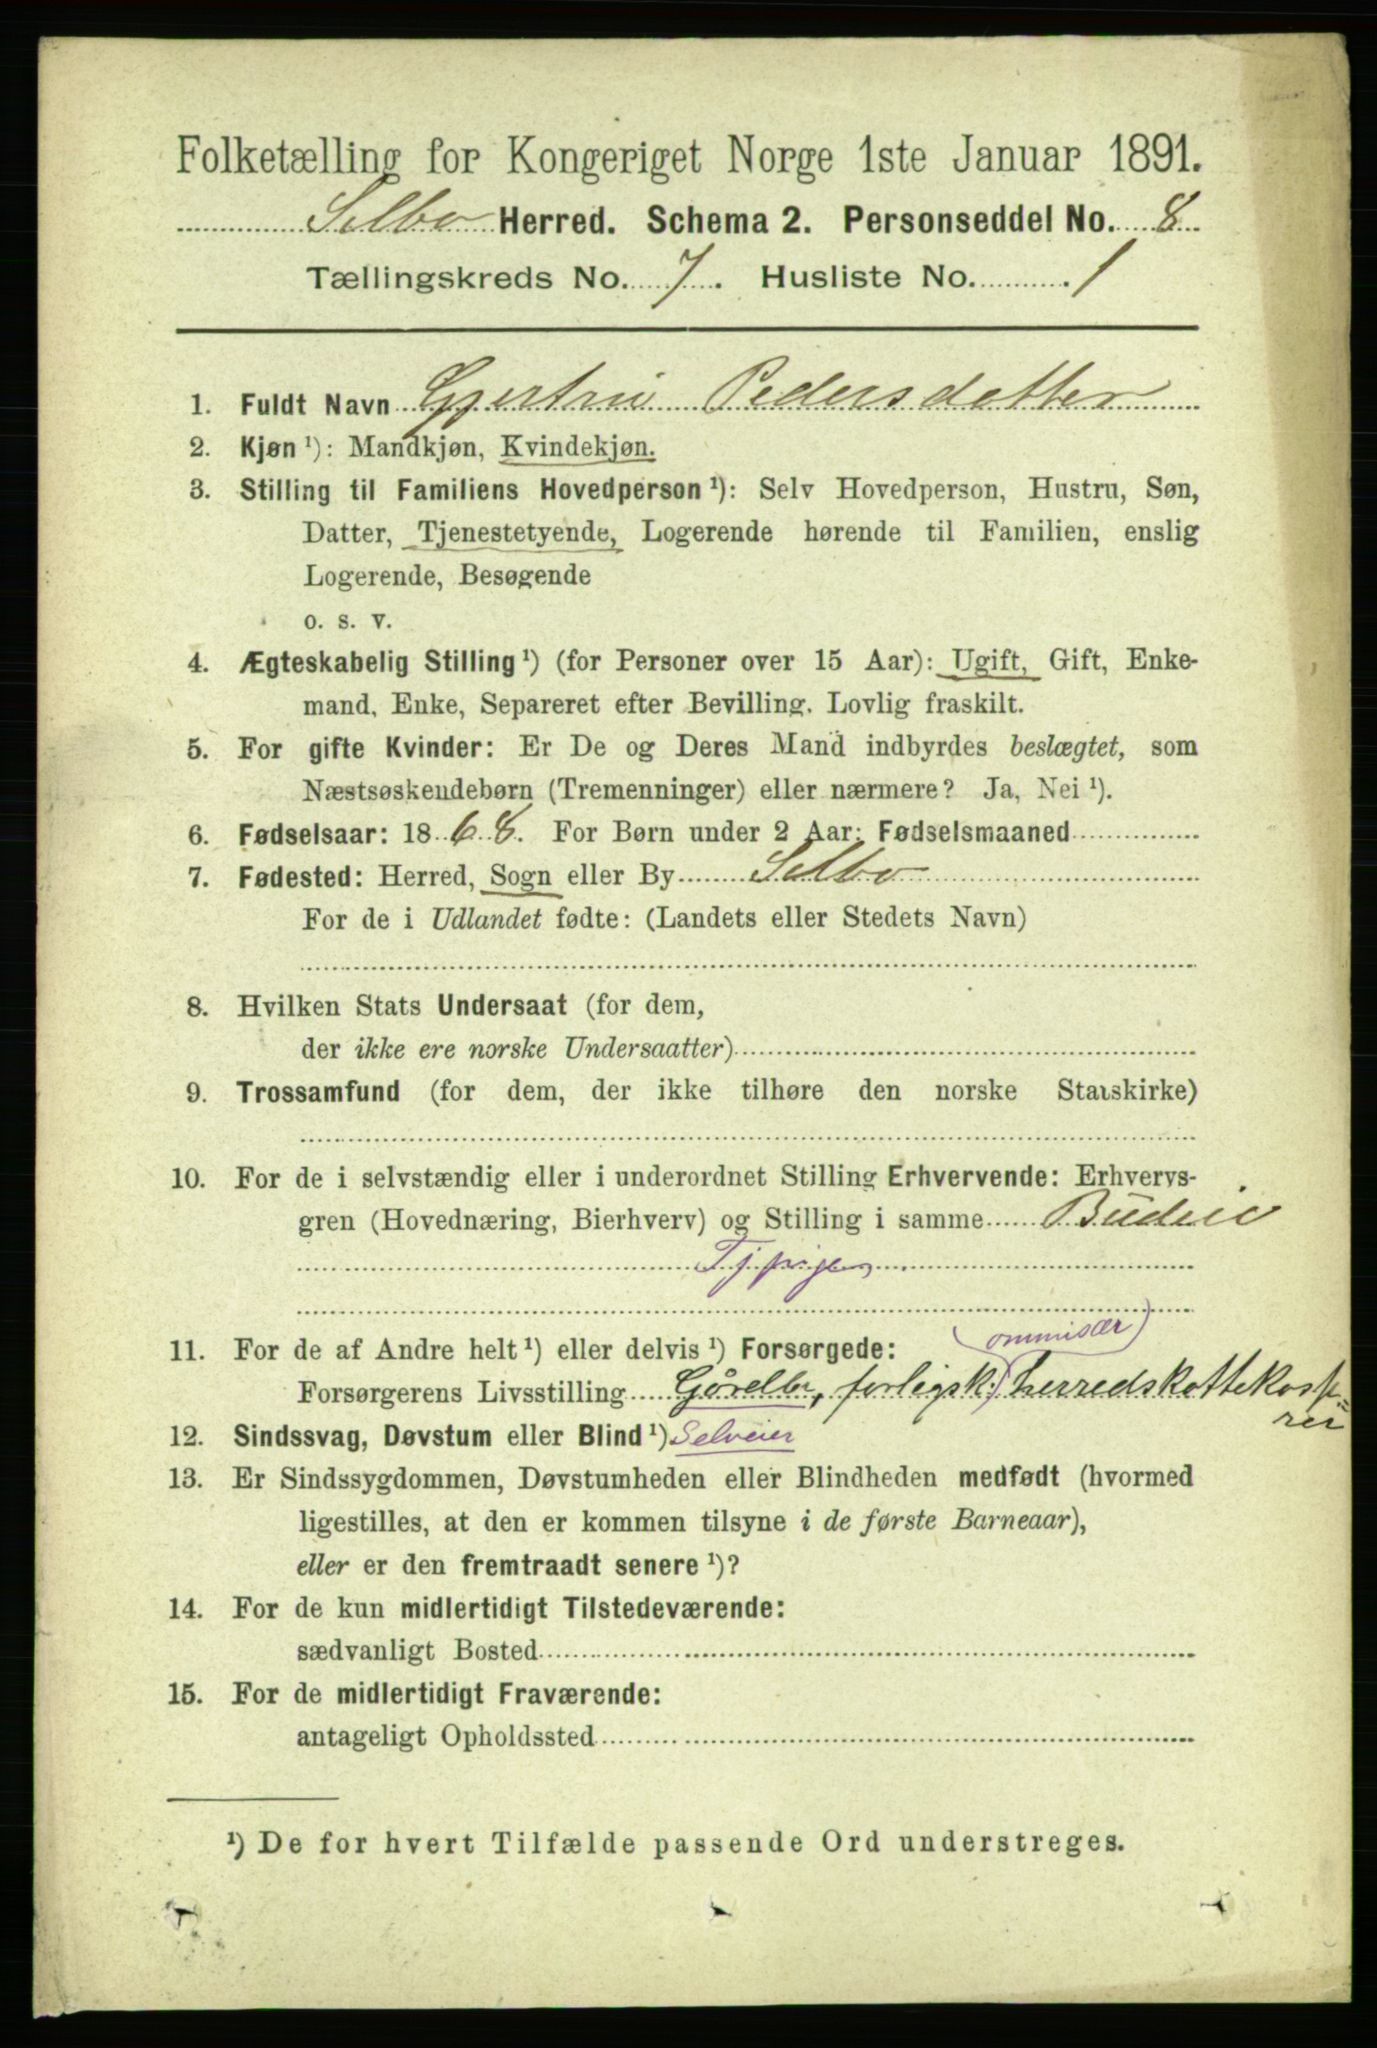 Folketælling for Kongeriget Norge 1ste Januar 1891.
Selbo Herred. Schema 2. Personseddel No. 8
Tællingskreds No. 7. Husliste No. 1
1. Fuldt Navn Gjertrui Pedersdatter
2. Kjøn ¹): Mandkjøn, Kvindekjøn.
3. Stilling til Familiens Hovedperson ¹): Selv Hovedperson, Hustru, Søn,
Datter, Tjenestetyende, Logerende hørende til Familien, enslig
Logerende, Besøgende
o. s. v.
4. Ægteskabelig Stilling ¹) (for Personer over 15 Aar): Ugift, Gift, Enke-
mand, Enke, Separeret efter Bevilling. Lovlig fraskilt.
5. For gifte Kvinder: Er De og Deres Mand indbyrdes beslægtet, som
Næstsøskendebørn (Tremenninger) eller nærmere? Ja, Nei ¹).
6. Fødselsaar: 1868. For Børn under 2 Aar: Fødselsmaaned
7. Fødested: Herred, Sogn eller By Selbo
For de i Udlandet fødte: (Landets eller Stedets Navn)
8. Hvilken Stats Undersaat (for dem,
der ikke ere norske Undersaatter)
9. Trossamfund (for dem, der ikke tilhøre den norske Statskirke)
10. For de i selvstændig eller i underordnet Stilling Erhvervende: Erhvervs-
gren (Hovednæring, Bierhverv) og Stilling i samme Budeie
Tj. pige
ommisær)
11. For de af Andre helt ¹) eller delvis ¹) Forsørgede:
Forsørgerens Livsstilling Gårdbr, forligsk.) herredskattekasse-
rer
12. Sindssvag, Døvstum eller Blind ¹) Selveier
13. Er Sindssygdommen, Døvstumheden eller Blindheden medfødt (hvormed
ligestilles, at den er kommen tilsyne i de første Barneaar),
eller er den fremtraadt senere ¹)?
14. For de kun midlertidigt Tilstedeværende:
sædvanligt Bosted
15. For de midlertidigt Fraværende:
antageligt Opholdssted
¹) De for hvert Tilfælde passende Ord understreges.